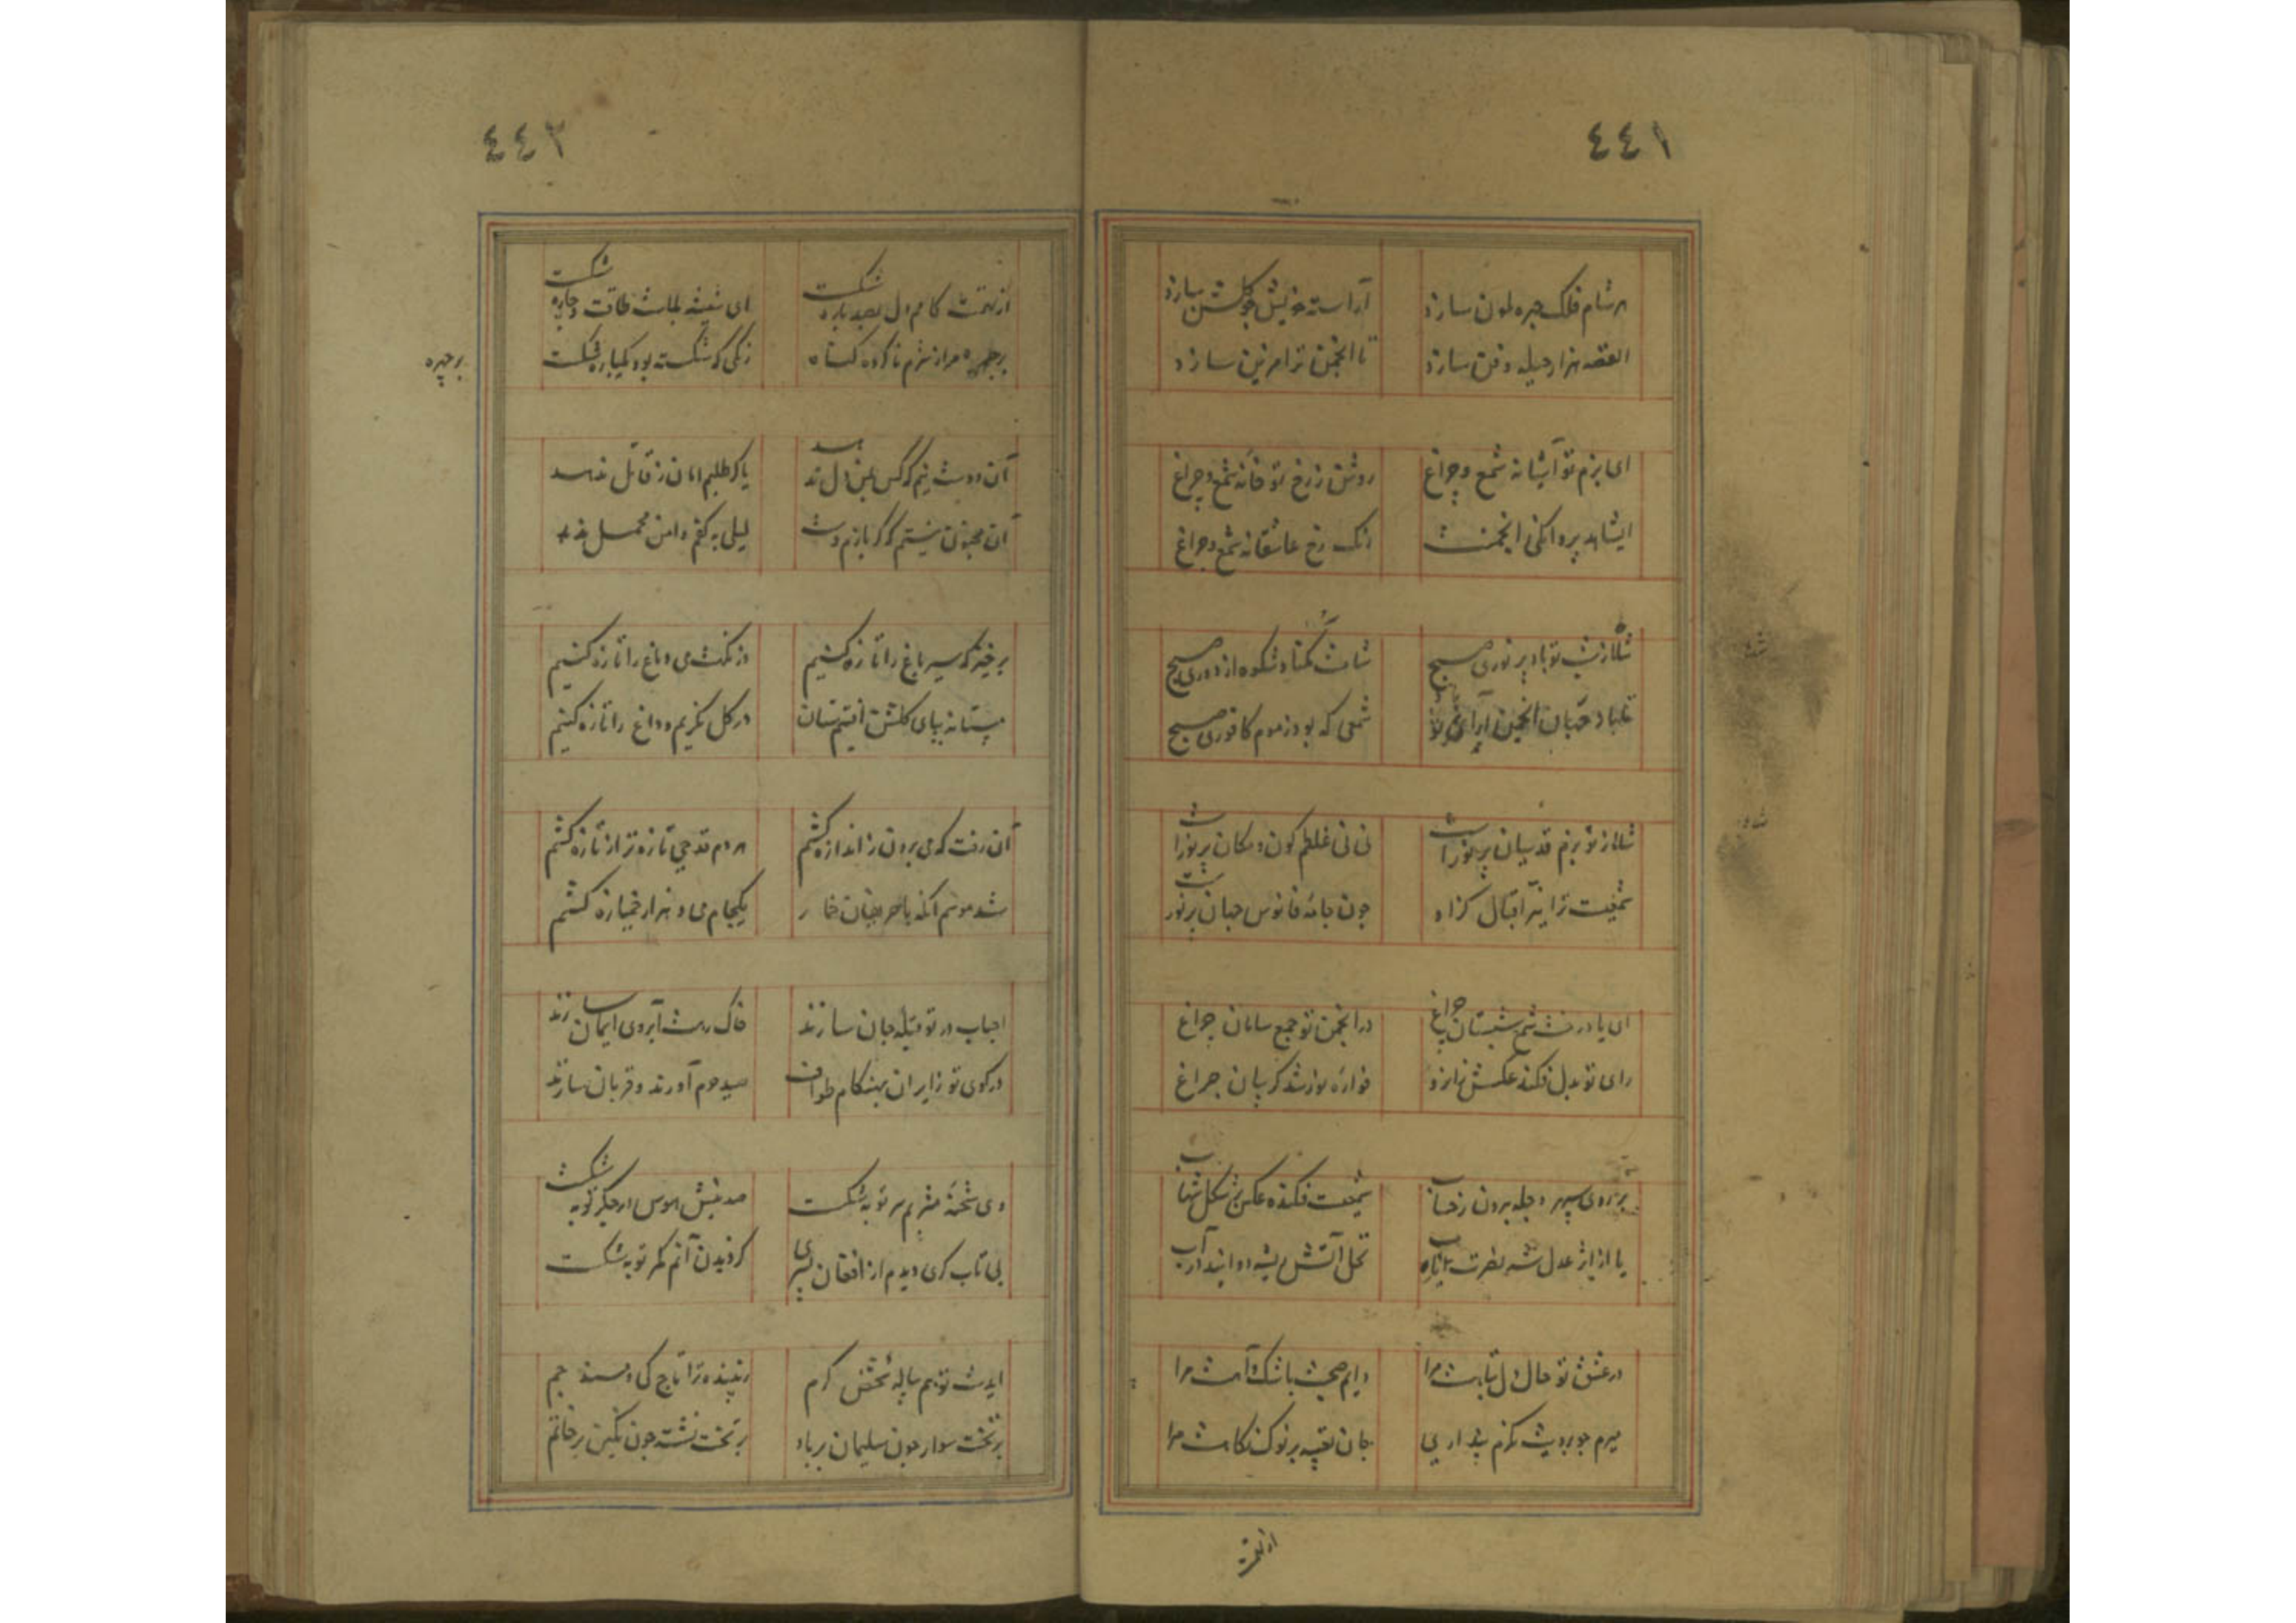 ٤٤١
هر شام فلک چره لون سازد
آراسته خویش چو گلشن سازد
القصه هزار حیله و فن سازد
تا انجمن ترا مزین سازد
ای بزم تو آشیانه شمع و چراغ
روشن ز رخ تو خانه شمع و چراغ
ایشاهد پروانگی انجمنت
رنگ رخ عاشقانه شمع و چراغ
شاها ز تو باد پر نوری صبح
شامت نکناد شکوه از دوری صبح
انجمن آرای تو
شمعی که بود ز موم کافوری صبح
شاها ز تو بزم قدسیان پر نور است
نی نی غلطم کون و مکان پر نور است
شمعیت ترا اقبال کزاو
چون جامه فانوس جهان پر نور است
ای یاد رخت شمع شبستان چراغ
در انجمن تو جمع سامان چراغ
رای تو بدل فکند عکسش زانرو
فواره نور شد گریبان چراغ
بر روی سپهر برون ز حساب
شمعیت فکنده عکس شکل شهاب
یا از اثر عدل شه
نخل آتش ریشه دوانید در آب
در عشق تو حال دل تبا هست مرا
دایم صحبت باشک و آهست مرا
میرم چو برویت نگرم پنداری
جان تعبیه بر نوک نگاهست مرا
از تهمت
٤٤٢
از تهمت کامم دل صد پاره شکست
ای شیشه طاقت و چاره شکست
بر چهره مرا ز شرم ناکرده گناه
رنگی که شکسته بود یکباره شکست
بر چهره
آن دوست نیم که کس بمن دل ندهد
یا گر طلبم امان ز قاتل ندهد
آن مجنون نیستم که گر بازم دست
لیلی به کفم دامن محمل ندهد
برخیز که سیر باغ را تازه کنیم
وز نکهت می دماغ را تازه کنیم
مستانه بپای گلبنی افتیم
در گل نگریم و داغ را تازه کنیم
آن رفت که می برون ز اندازه کشم
هر دم قدحی تازه تر از تازه کشم
شد موسم آنکه با حریفان خمار
یکجام می و هزار خمیازه کشم
احباب در تو قبله جان سازند
خاک رهت آبروی ایمان سازند
در کوی تو زایران بهنگام طواف
صید حرم آورند و قربان سازند
دی شحنه سر توبه شکست
صد نیش هوس در جگر توبه شکست
بی تاب کری دیدم از افغان پسری
گردیدن آنم کمر توبه شکست
بخشش کرم
زیبنده ترا تاج کی و مسند جم
بر تخت سوار چون سلیمان بر باد
بر تخت نشسته چون نگین بر خاتم